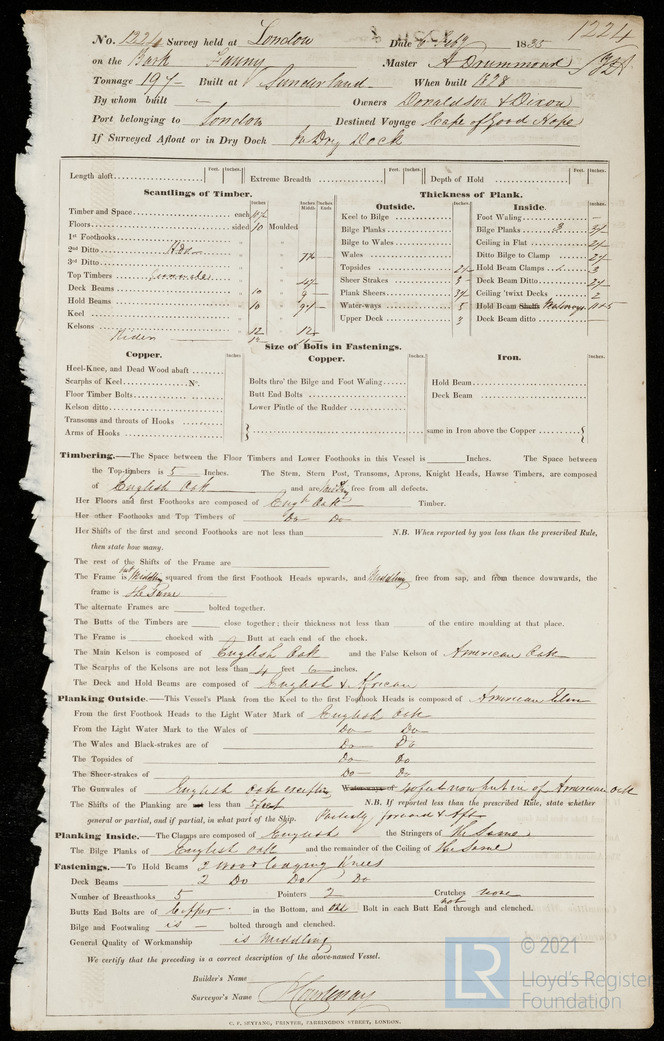 1224
No. 1224 Survey held at London Date 6 Feby 1835
on the Bark Fanny Master A Drummond
Tonnage 197 Built at Sunderland When built 1828
By whom built — Owners Donaldson & Dixon
Port belonging to London Destined Voyage Cape of Good Hope
If Surveyed Afloat or in Dry Dock In Dry Dock
Length aloft Feet. Inches. Extreme Breadth Feet. Inches. Depth of Hold Feet. Inches.
Scantlings of Timber.
Inches Inches Middle Inches Ends
Timber and Space each
Floors sided 10 Moulded
1st Foothooks
2nd Ditto
3rd Ditto
Top Timbers
Deck Beams 10 9
Hold Beams 10
Keel
Kelsons 12
Thickness of Plank.
Outside. Inches
Keel to Bilge
Bilge Planks
Bilge to Wales
Wales
Topsides
Sheer Strakes 3
Plank Sheers
Water-ways 5
Upper Deck 3
Inside. Inches
Foot Waling —
Bilge Planks 3
Ceiling in Flat
Ditto Bilge to Clamp
Hold Beam Clamps 3
Deck Beam Ditto
Ceiling 'twixt Decks 2
Hold Beam Shelfs Waterways
Deck Beam ditto —
Size of Bolts in Fastenings.
Copper. Inches
Heel-Knee, and Dead Wood abaft
Scarphs of Keel No.
Floor Timber Bolts
Kelson ditto
Transoms and throats of Hooks
Arms of Hooks
Copper. Inches
Bolts thro' the Bilge and Foot Waling
Butt End Bolts
Lower Pintle of the Rudder
Iron. Inches
Hold Beam
Deck Beam
same in Iron above the Copper
Timbering.—The Space between the Floor Timbers and Lower Foothooks in this Vessel is Inches. The Space between
the Top-timbers is 5 Inches. The Stem, Stern Post, Transoms, Aprons, Knight Heads, Hawse Timbers, are composed
of English Oak and are Middling free from all defects.
Her Floors and first Foothooks are composed of Engh Oak Timber.
Her other Foothooks and Top Timbers of Do Do
Her Shifts of the first and second Foothooks are not less than N.B. When reported by you less than the prescribed Rule,
then state how many.
The rest of the Shifts of the Frame are
The Frame is but Middling squared from the first Foothook Heads upwards, and Middling free from sap, and from thence downwards, the
frame is the Same
The alternate Frames are bolted together.
The Butts of the Timbers are close together; their thickness not less than of the entire moulding at that place.
The Frame is chocked with Butt at each end of the chock.
The Main Kelson is composed of English Oak and the False Kelson of American Oak
The Scarphs of the Kelsons are not less than 4 feet 6 inches.
The Deck and Hold Beams are composed of English & African
Planking Outside.—This Vessel's Plank from the Keel to the first Foothook Heads is composed of American Elm
From the first Foothook Heads to the Light Water Mark of English Oak
From the Light Water Mark to the Wales of Do Do
The Wales and Black-strakes are of Do Do
The Topsides of Do Do
The Sheer-strakes of Do Do
The Gunwales of English Oak except Water-ways of now put in of American Oak
The Shifts of the Planking are not less than 5 feet N.B. If reported less than the prescribed Rule, state whether
general or partial, and if partial, in what part of the Ship. Partially forward & Aft
Planking Inside.—The Clamps are composed of English the Stringers of the Same
The Bilge Planks of English Oak and the remainder of the Ceiling of the Same
Fastenings.—To Hold Beams 2 wood lodging Knees
Deck Beams 2 Do Do Do
Number of Breasthooks 5 Pointers 2 Crutches none
Butts End Bolts are of Copper in the Bottom, and one Bolt in each Butt End not through and clenched.
Bilge and Footwaling is — bolted through and clenched.
General Quality of Workmanship is Middling
We certify that the preceding is a correct description of the above-named Vessel.
Builder's Name
Surveyor's Name Courtenay
C. F. SEYFANG, PRINTER, FARRINGDON STREET, LONDON.
LR © 2021
Lloyd's Register
Foundation